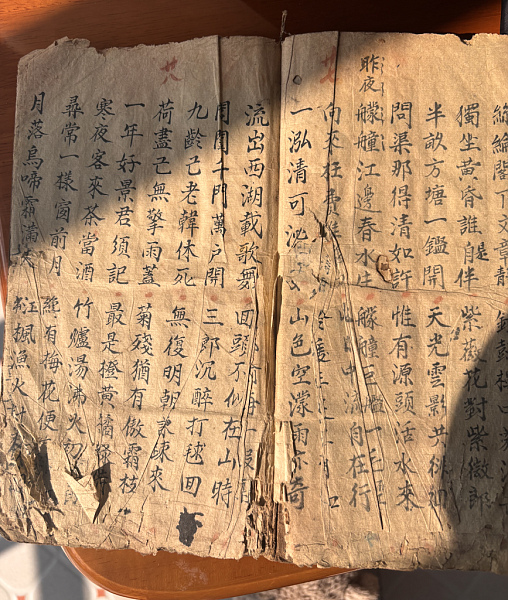 絲綸閣下文章靜
獨坐黃昏誰是自伴 紫薇花對紫微郎
半畝方塘一鑑開 天光雲影共徘徊
問渠那得清如許 惟有源頭活水來
昨夜艨艟江邊春水生 艨艟巨艦一毛輕
向來枉費 中流自在行
一泓清可沁 山色空濛雨亦奇
流出西湖載歌舞 回頭不似在山時
周圍千門萬戶開 三郎沉醉打毬回
九齡已老韓休死 無復明朝諫疎來
荷盡已無擎雨蓋 菊殘猶有傲霜枝
一年好景君須記 最是橙黃橘綠
寒夜客來茶當酒 竹爐湯沸火初
尋常一樣窗前月 纔有梅花便
月落烏啼霜滿天 江楓漁火對